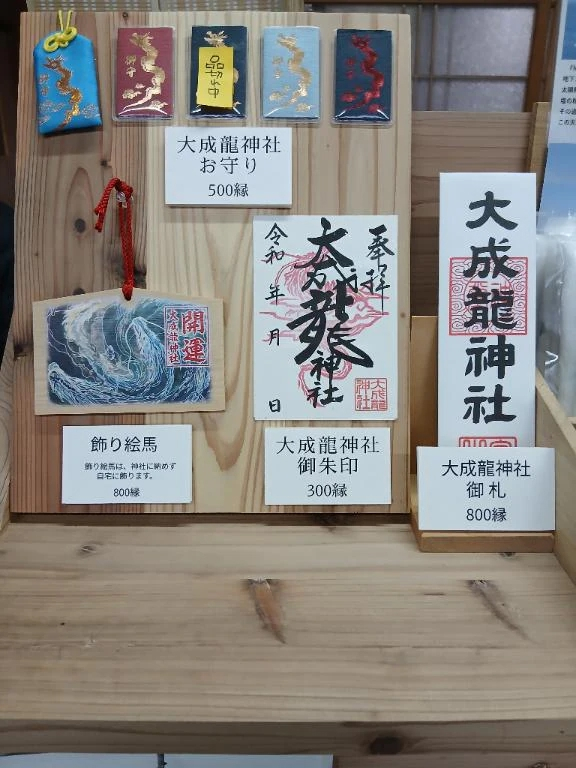 御守
御守
品切れ中
御守
御守
大成龍神社
お守り
500縁
奉拝
大成龍神社
令和 年 月 日
大成龍
神社
開運
大成龍神社
飾り絵馬
飾り絵馬は、神社に納めず
自宅に飾ります。
800縁
大成龍神社
御朱印
300縁
大成龍神社
大成龍神社
御札
800縁